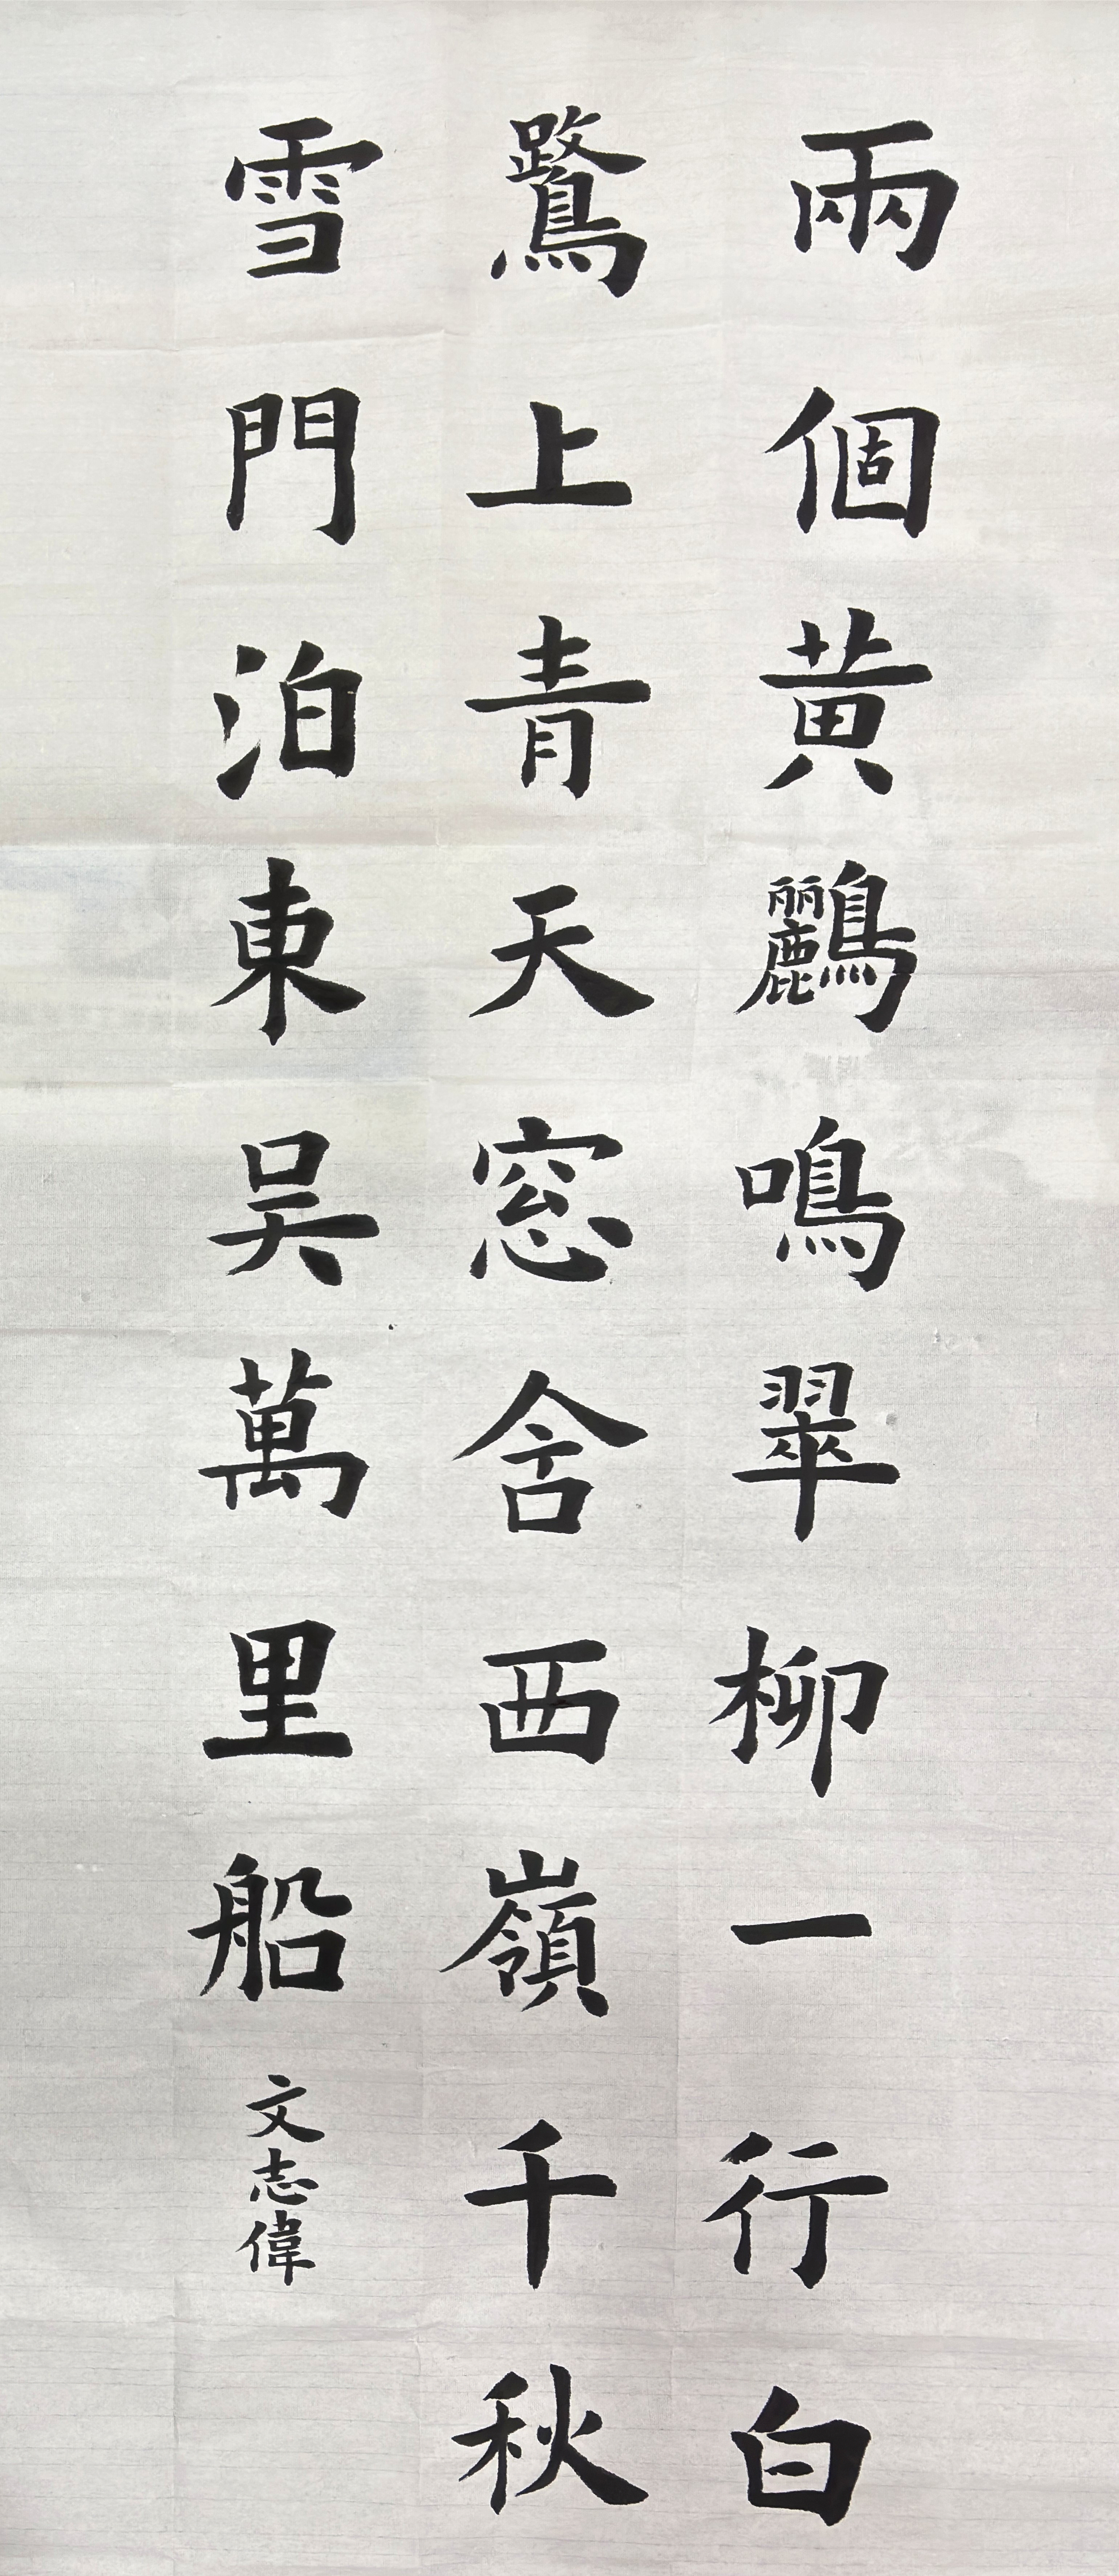 兩個黃鸝鳴翠柳一行白
鷺上青天窓含西嶺千秋
雪門泊東吴萬里船
文志偉